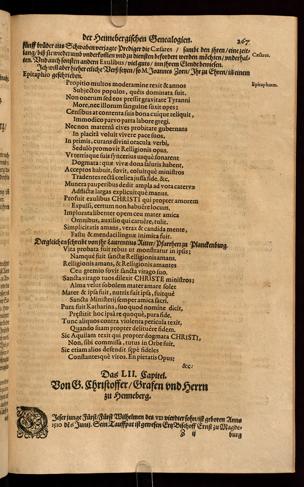 der Hennebergischen Genealogien. 267
fünff brüder aus Schwaben verjagte Prediger die Cæsures / sambt den ihren / eine zeit-
lang / biß sie wieder und underkommen und zu diensten befördert werden möchten / underhal-
ten. Und auch sonsten andere Exulibus / viel guts / inn ihrem Elende bewiesen.
Cæsures.
Ich will aber hieher etliche Vers setzen / so M. Joannes Zonn / Ihr zu Ehren / in einem
Epitaphio geschrieben.
Epitaphium.
Propitio multos moderamine rexit &annos
Subjectos populos, quêis dominata fuit.
Non onerum sed eos pressit gravitate Tyranni
More, nec illorum sanguine suxit opes:
Censibus at contenta suis bona cuique reliquit,
Immodico parvo parta labore gregi.
Nec non materna cives probitate gubernans
In placita voluit vivere pace suos,
In primis, curans divini oracula verbi,
Sedulo promovit Relligionis opus.
Vt retineque suis syncerius usque sonarent
Dogmata: quæ vivæ dona salutis habent.
Acceptos habuit, fovit, coluitque ministros
Tradentes recta cœlica jussa fide. &c.
Munera pauperibus dedit ampla ad vota catervæ
Adflictæ largas explicuitque manus.
Profuit exulibus CHRISTI qui propter amorem
Expulsi, certum non habuêre locum.
Implorans liber opem ceu mater amica
Omnibus, auxilio qui caruêre, tulit.
Simplicitatis amans, veræ & candida mente,
Fastus & mendacis linguæ inimica fuit.
Dergleichen schreibt von ihr Laurentius Ritter / Pfarrherr zu Planckenburg.
Vita probata fuit rebus ut monstratur in ipsis:
Namque fuit sancte Relligionis amans.
Relligionis amans, & Relligionis amantes
Ceu gremio fovit sancta virago suo.
Sancta virago tuos dilexit CHRISTE ministros:
Alma velut sobolem mater amare solet
Mater & ipsa fuit, nutrix fuit ipsa, fuitque
Sancta Ministerii semper amica sacri,
Pura fuit Katharina, suo quod nomine dicit,
Præstitit hoc ipsa re quoque, pura fide.
Tunc aliquos contra violenta pericula texit,
Quando suam propter delituêre fidem.
Sic Aquilam texit qui propter dogmata CHRISTI,
Non, sibi commissa, tutus in Orbe fuit.
Sic etiam alios defendit sępè fideles
Constanteque viros. En pietatis Opus;
&c:
Das LII. Capitel.
Von G. Christoffer / Grafen und Herrn
zu Henneberg.
Dieser junge Fürst / Fürst Wilhelmen des VII vierdter sohn / ist geboren Anno
1510 des 6 Junij. Sein Tauffpat ist gewesen Ertz Bischoff Ernst zu Magde-
Z ij burg